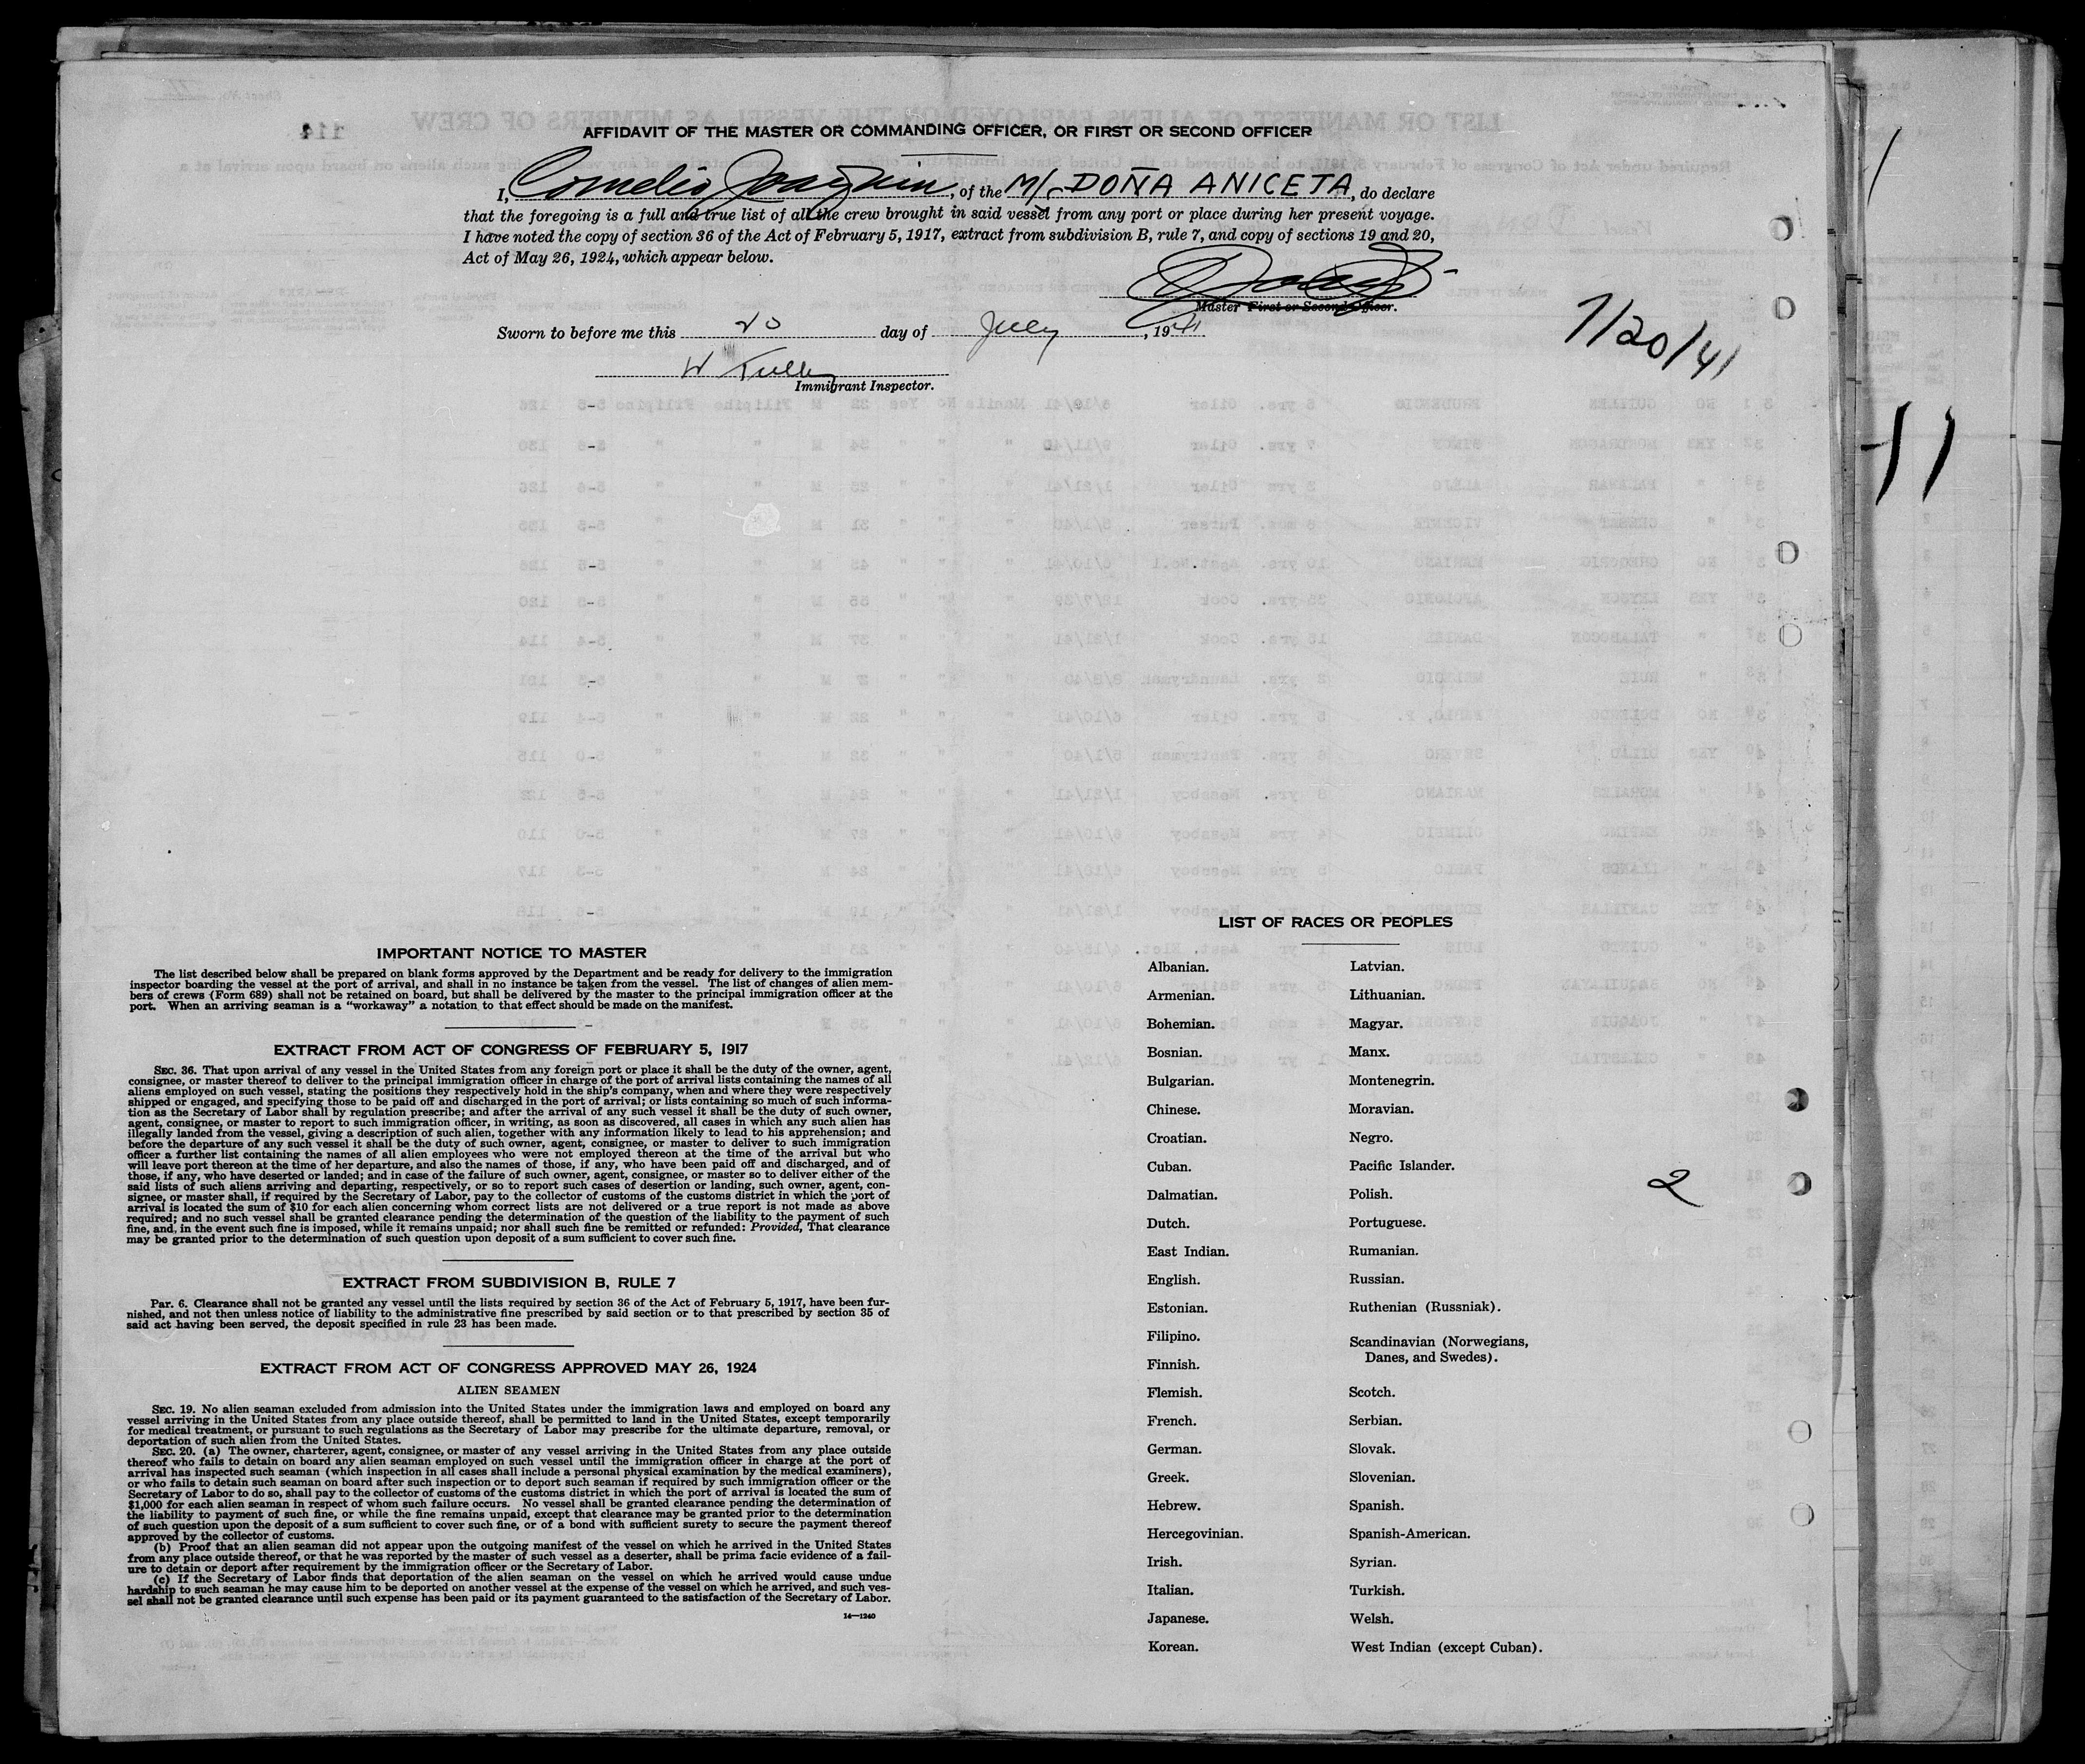 AFFIDAVIT OF THE MASTER OR COMMANDING OFFICER, OR FIRST OR SECOND OFFICER
I, Cornelio Joaquin, of the M/S DOÑA ANICETA, do declare
that the foregoing is a full and true list of all the crew brought in said vessel from any port or place during her present voyage.
I have noted the copy of section 36 of the Act of February 5, 1917, extract from subdivision B, rule 7, and copy of sections 19 and 20,
Act of May 26, 1924, which appear below.
Master First or Second Officer.
7/20/41
Sworn to before me this 20 day of July, 1941
W Tully
Immigrant Inspector.
11
IMPORTANT NOTICE TO MASTER
The list described below shall be prepared on blank forms approved by the Department and be ready for delivery to the immigration
inspector boarding the vessel at the port of arrival, and shall in no instance be taken from the vessel. The list of changes of alien mem-
bers of crews (Form 689) shall not be retained on board, but shall be delivered by the master to the principal immigration officer at the
port. When an arriving seaman is a “workaway” a notation to that effect should be made on the manifest.
EXTRACT FROM ACT OF CONGRESS OF FEBRUARY 5, 1917
SEC. 36. That upon arrival of any vessel in the United States from any foreign port or place it shall be the duty of the owner, agent,
consignee, or master thereof to deliver to the principal immigration officer in charge of the port of arrival lists containing the names of all
aliens employed on such vessel, stating the positions they respectively hold in the ship's company, when and where they were respectively
shipped or engaged, and specifying those to be paid off and discharged in the port of arrival; or lists containing so much of such informa-
tion as the Secretary of Labor shall by regulation prescribe; and after the arrival of any such vessel it shall be the duty of such owner,
agent, consignee, or master to report to such immigration officer, in writing, as soon as discovered, all cases in which any such alien has
illegally landed from the vessel, giving a description of such alien, together with any information likely to lead to his apprehension; and
before the departure of any such vessel it shall be the duty of such owner, agent, consignee, or master to deliver to such immigration
officer a further list containing the names of all alien employees who were not employed thereon at the time of the arrival but who
will leave port thereon at the time of her departure, and also the names of those, if any, who have been paid off and discharged, and of
those, if any, who have deserted or landed; and in case of the failure of such owner, agent, consignee, or master so to deliver either of the
said lists of such aliens arriving and departing, respectively, or so to report such cases of desertion or landing, such owner, agent, con-
signee, or master shall, if required by the Secretary of Labor, pay to the collector of customs of the customs district in which the port of
arrival is located the sum of $10 for each alien concerning whom correct lists are not delivered or a true report is not made as above
required; and no such vessel shall be granted clearance pending the determination of the question of the liability to the payment of such
fine, and, in the event such fine is imposed, while it remains unpaid; nor shall such fine be remitted or refunded: Provided, That clearance
may be granted prior to the determination of such question upon deposit of a sum sufficient to cover such fine.
EXTRACT FROM SUBDIVISION B, RULE 7
Par. 6. Clearance shall not be granted any vessel until the lists required by section 36 of the Act of February 5, 1917, have been fur-
nished, and not then unless notice of liability to the administrative fine prescribed by said section or to that prescribed by section 35 of
said act having been served, the deposit specified in rule 23 has been made.
EXTRACT FROM ACT OF CONGRESS APPROVED MAY 26, 1924
ALIEN SEAMEN
SEC. 19. No alien seaman excluded from admission into the United States under the immigration laws and employed on board any
vessel arriving in the United States from any place outside thereof, shall be permitted to land in the United States, except temporarily
for medical treatment, or pursuant to such regulations as the Secretary of Labor may prescribe for the ultimate departure, removal, or
deportation of such alien from the United States.
SEC. 20. (a) The owner, charterer, agent, consignee, or master of any vessel arriving in the United States from any place outside
thereof who fails to detain on board any alien seaman employed on such vessel until the immigration officer in charge at the port of
arrival has inspected such seaman (which inspection in all cases shall include a personal physical examination by the medical examiners),
or who fails to detain such seaman on board after such inspection or to deport such seaman if required by such immigration officer or the
Secretary of Labor to do so, shall pay to the collector of customs of the customs district in which the port of arrival is located the sum of
$1,000 for each alien seaman in respect of whom such failure occurs. No vessel shall be granted clearance pending the determination of
the liability to payment of such fine, or while the fine remains unpaid, except that clearance may be granted prior to the determination
of such question upon the deposit of a sum sufficient to cover such fine, or of a bond with sufficient surety to secure the payment thereof
approved by the collector of customs.
(b) Proof that an alien seaman did not appear upon the outgoing manifest of the vessel on which he arrived in the United States
from any place outside thereof, or that he was reported by the master of such vessel as a deserter, shall be prima facie evidence of a fail-
ure to detain or deport after requirement by the immigration officer or the Secretary of Labor.
(c) If the Secretary of Labor finds that deportation of the alien seaman on the vessel on which he arrived would cause undue
hardship to such seaman he may cause him to be deported on another vessel at the expense of the vessel on which he arrived, and such ves-
sel shall not be granted clearance until such expense has been paid or its payment guaranteed to the satisfaction of the Secretary of Labor.
14—1240
LIST OF RACES OR PEOPLES
Albanian.
Armenian.
Bohemian.
Bosnian.
Bulgarian.
Chinese.
Croatian.
Cuban.
Dalmatian.
Dutch.
East Indian.
English.
Estonian.
Filipino.
Finnish.
Flemish.
French.
German.
Greek.
Hebrew.
Hercegovinian.
Irish.
Italian.
Japanese.
Korean.
Latvian.
Lithuanian.
Magyar.
Manx.
Montenegrin.
Moravian.
Negro.
Pacific Islander.
Polish.
Portuguese.
Rumanian.
Russian.
Ruthenian (Russniak).
Scandinavian (Norwegians,
Danes, and Swedes).
Scotch.
Serbian.
Slovak.
Slovenian.
Spanish.
Spanish-American.
Syrian.
Turkish.
Welsh.
West Indian (except Cuban).
2